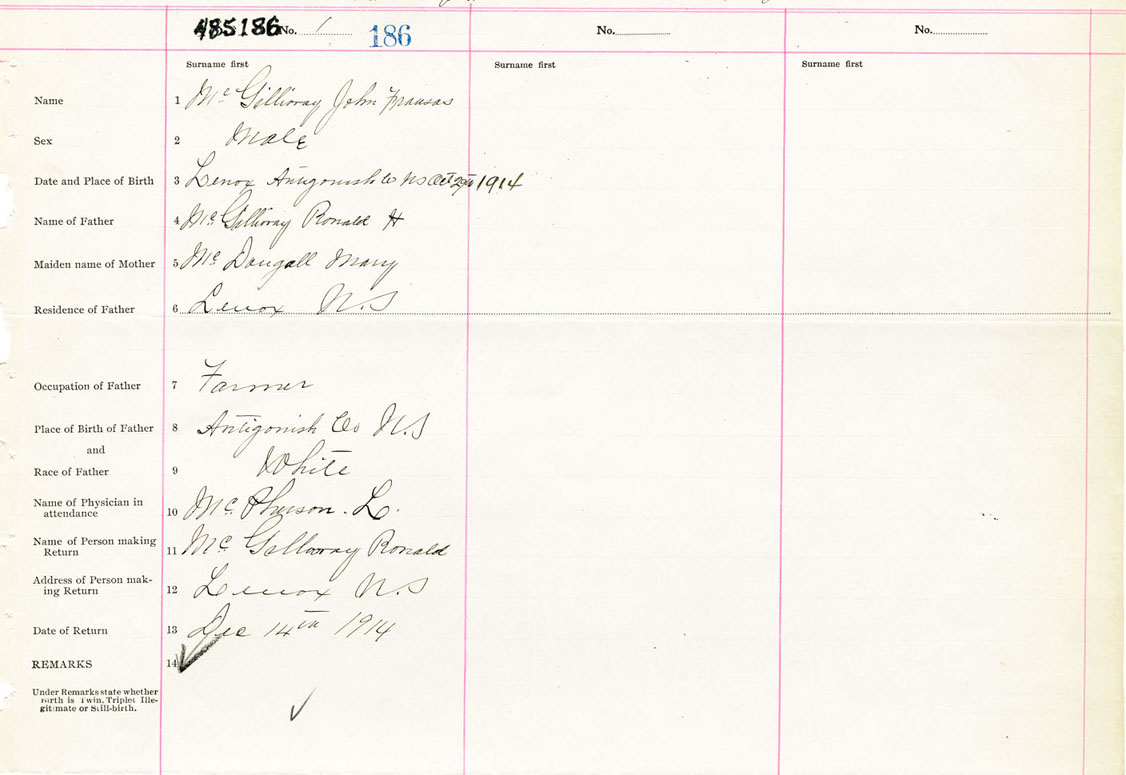 485186 No. 1 186 No. No.
Surname first Surname first Surname first
Name 1 Mc Gillivray John Fransas
Sex 2 Male
Date and Place of Birth 3 Lenox Antigonish Co NS Oct 29th 1914
Name of Father 4 Mc Gillivray Ronald H
Maiden name of Mother 5 Mc Dougall Mary
Residence of Father 6 Lenox N.S
Occupation of Father 7 Farmer
Place of Birth of Father 8 Antigonish Co N.S
and
Race of Father 9 White
Name of Physician in
attendance 10 Mc. Pherson. L.
Name of Person making
Return 11 Mc Gillivray Ronald
Address of Person mak-
ing Return 12 Lenox N.S
Date of Return 13 Dec 14th 1914
REMARKS 14
Under Remarks state whether
Birth is Twin, Triplet Ille-
gitimate or Still-birth.